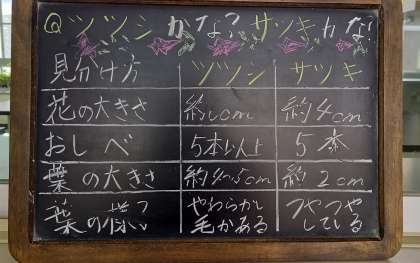 Q ツツジかな？サツキかな？
見分け方 ツツジ サツキ
花の大きさ 約6cm 約4cm
おしべ 5本以上 5本
葉の大きさ 約4〜5cm 約2cm
葉の様子 やわらかい毛がある つやつやしている